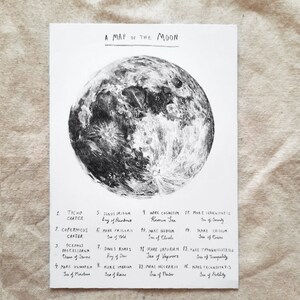 A MAP OF THE MOON
1. TYCHO CRATER
2. COPERNICUS CRATER
3. OCEANUS PROCELLARUM
Ocean of Storms
4. MARE HUMORUM
Sea of Moisture
5. SINUS IRIDUM
Bay of Rainbows
6. MARE FRIGORIS
Sea of Cold
7. SINUS RORIS
Bay of Dew
8. MARE
Sea of
9. MARE COGNITUM
Known Sea
10. MARE NUBIUM
Sea of Clouds
11. MARE VAPORUM
Sea of Vapours
12. MARE NECTARIS
Sea of Nectar
13. MARE SERENITATIS
Sea of Serenity
14. MARE CRISIUM
Sea of Crises
15. MARE TRANQUILLITATIS
Sea of Tranquility
16. MARE FECUNDITATIS
Sea of Fertility